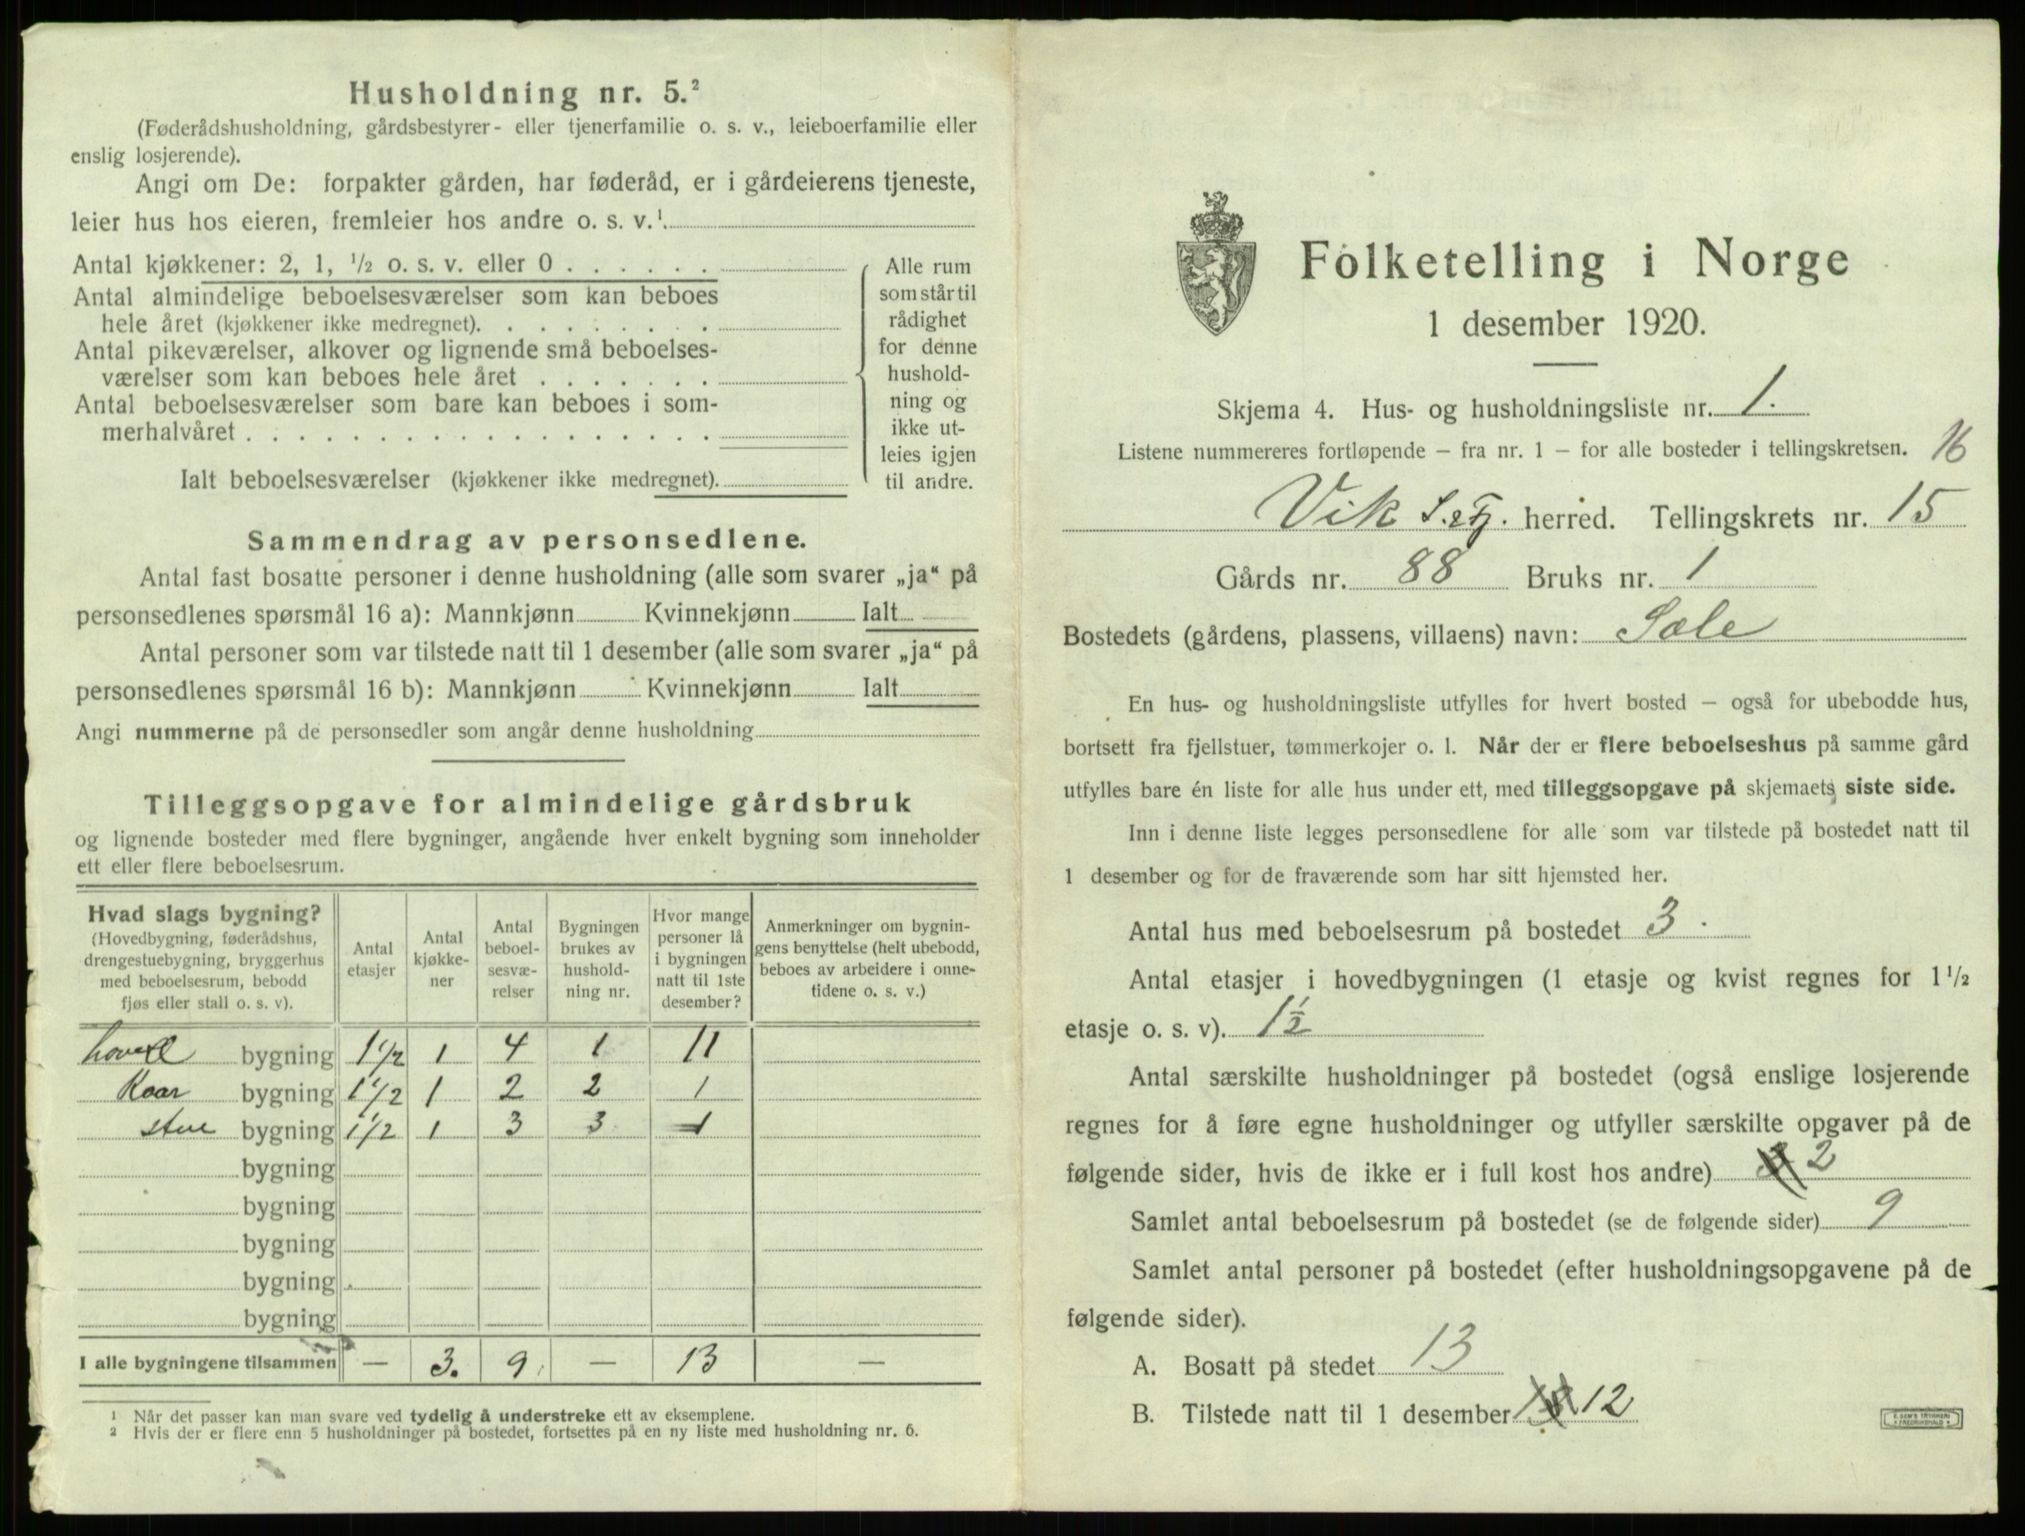 Husholdning nr. 5.²
(Føderådshusholdning, gårdsbestyrer- eller tjenerfamilie o. s. v., leieboerfamilie eller
enslig losjerende).
Angi om De: forpakter gården, har føderåd, er i gårdeierens tjeneste,
leier hus hos eieren, fremleier hos andre o. s. v.¹.
Antal kjøkkener: 2, 1, ½ o. s. v. eller 0
Antal almindelige beboelsesværelser som kan beboes
hele året (kjøkkener ikke medregnet).
Antal pikeværelser, alkover og lignende små beboelses-
værelser som kan beboes hele året
Antal beboelsesværelser som bare kan beboes i som-
merhalvåret
Ialt beboelsesværelser (kjøkkener ikke medregnet).
Alle rum
som står til
rådighet
for denne
hushold-
ning og
ikke ut-
leies igjen
til andre.
Sammendrag av personsedlene.
Antal fast bosatte personer i denne husholdning (alle som svarer „ja“ på
personsedlenes spørsmål 16 a): Mannkjønn Kvinnekjønn Ialt
Antal personer som var tilstede natt til 1 desember (alle som svarer „ja“ på
personsedlenes spørsmål 16 b): Mannkjønn Kvinnekjønn Ialt
Angi nummerne på de personsedler som angår denne husholdning
Tilleggsopgave for almindelige gårdsbruk
og lignende bosteder med flere bygninger, angående hver enkelt bygning som inneholder
ett eller flere beboelsesrum.
Hvad slags bygning?
(Hovedbygning, føderådshus,
drengestuebygning, bryggerhus
med beboelsesrum, bebodd
fjøs eller stall o. s. v).
Antal
etasjer
Antal
kjøkke-
ner
Antal
beboel-
sesvæ-
relser
Bygningen
brukes av
hushold-
ning nr.
Hvor mange
personer lå
i bygningen
natt til 1ste
desember?
Anmerkninger om bygnin-
gens benyttelse (helt ubebodd,
beboes av arbeidere i onne-
tidene o. s. v.)
hoved bygning 1 1/2 1 4 1 11
Kaar bygning 1 1/2 1 2 2 1
stue bygning 1 1/2 1 3 3 1
bygning
bygning
bygning
bygning
bygning
I alle bygningene tilsammen — 3. 9. — 13 —
¹ Når det passer kan man svare ved tydelig å understreke ett av eksemplene.
² Hvis der er flere enn 5 husholdninger på bostedet, fortsettes på en ny liste med husholdning nr. 6.
Folketelling i Norge
1 desember 1920.
Skjema 4. Hus- og husholdningsliste nr. 1.
Listene nummereres fortløpende — fra nr. 1 — for alle bosteder i tellingskretsen. 16
Vik herred. Tellingskrets nr. 15
Gårds nr. 88 Bruks nr. 1
Bostedets (gårdens, plassens, villaens) navn: Sæle
En hus- og husholdningsliste utfylles for hvert bosted — også for ubebodde hus,
bortsett fra fjellstuer, tømmerkojer o. l. Når der er flere beboelseshus på samme gård
utfylles bare én liste for alle hus under ett, med tilleggsopgave på skjemaets siste side.
Inn i denne liste legges personsedlene for alle som var tilstede på bostedet natt til
1 desember og for de fraværende som har sitt hjemsted her.
Antal hus med beboelsesrum på bostedet 3
Antal etasjer i hovedbygningen (1 etasje og kvist regnes for 1½
etasje o. s. v). 1½
Antal særskilte husholdninger på bostedet (også enslige losjerende
regnes for å føre egne husholdninger og utfyller særskilte opgaver på de
følgende sider, hvis de ikke er i full kost hos andre) 2
Samlet antal beboelsesrum på bostedet (se de følgende sider) 9
Samlet antal personer på bostedet (efter husholdningsopgavene på de
følgende sider).
A. Bosatt på stedet 13
B. Tilstede natt til 1 desember 12